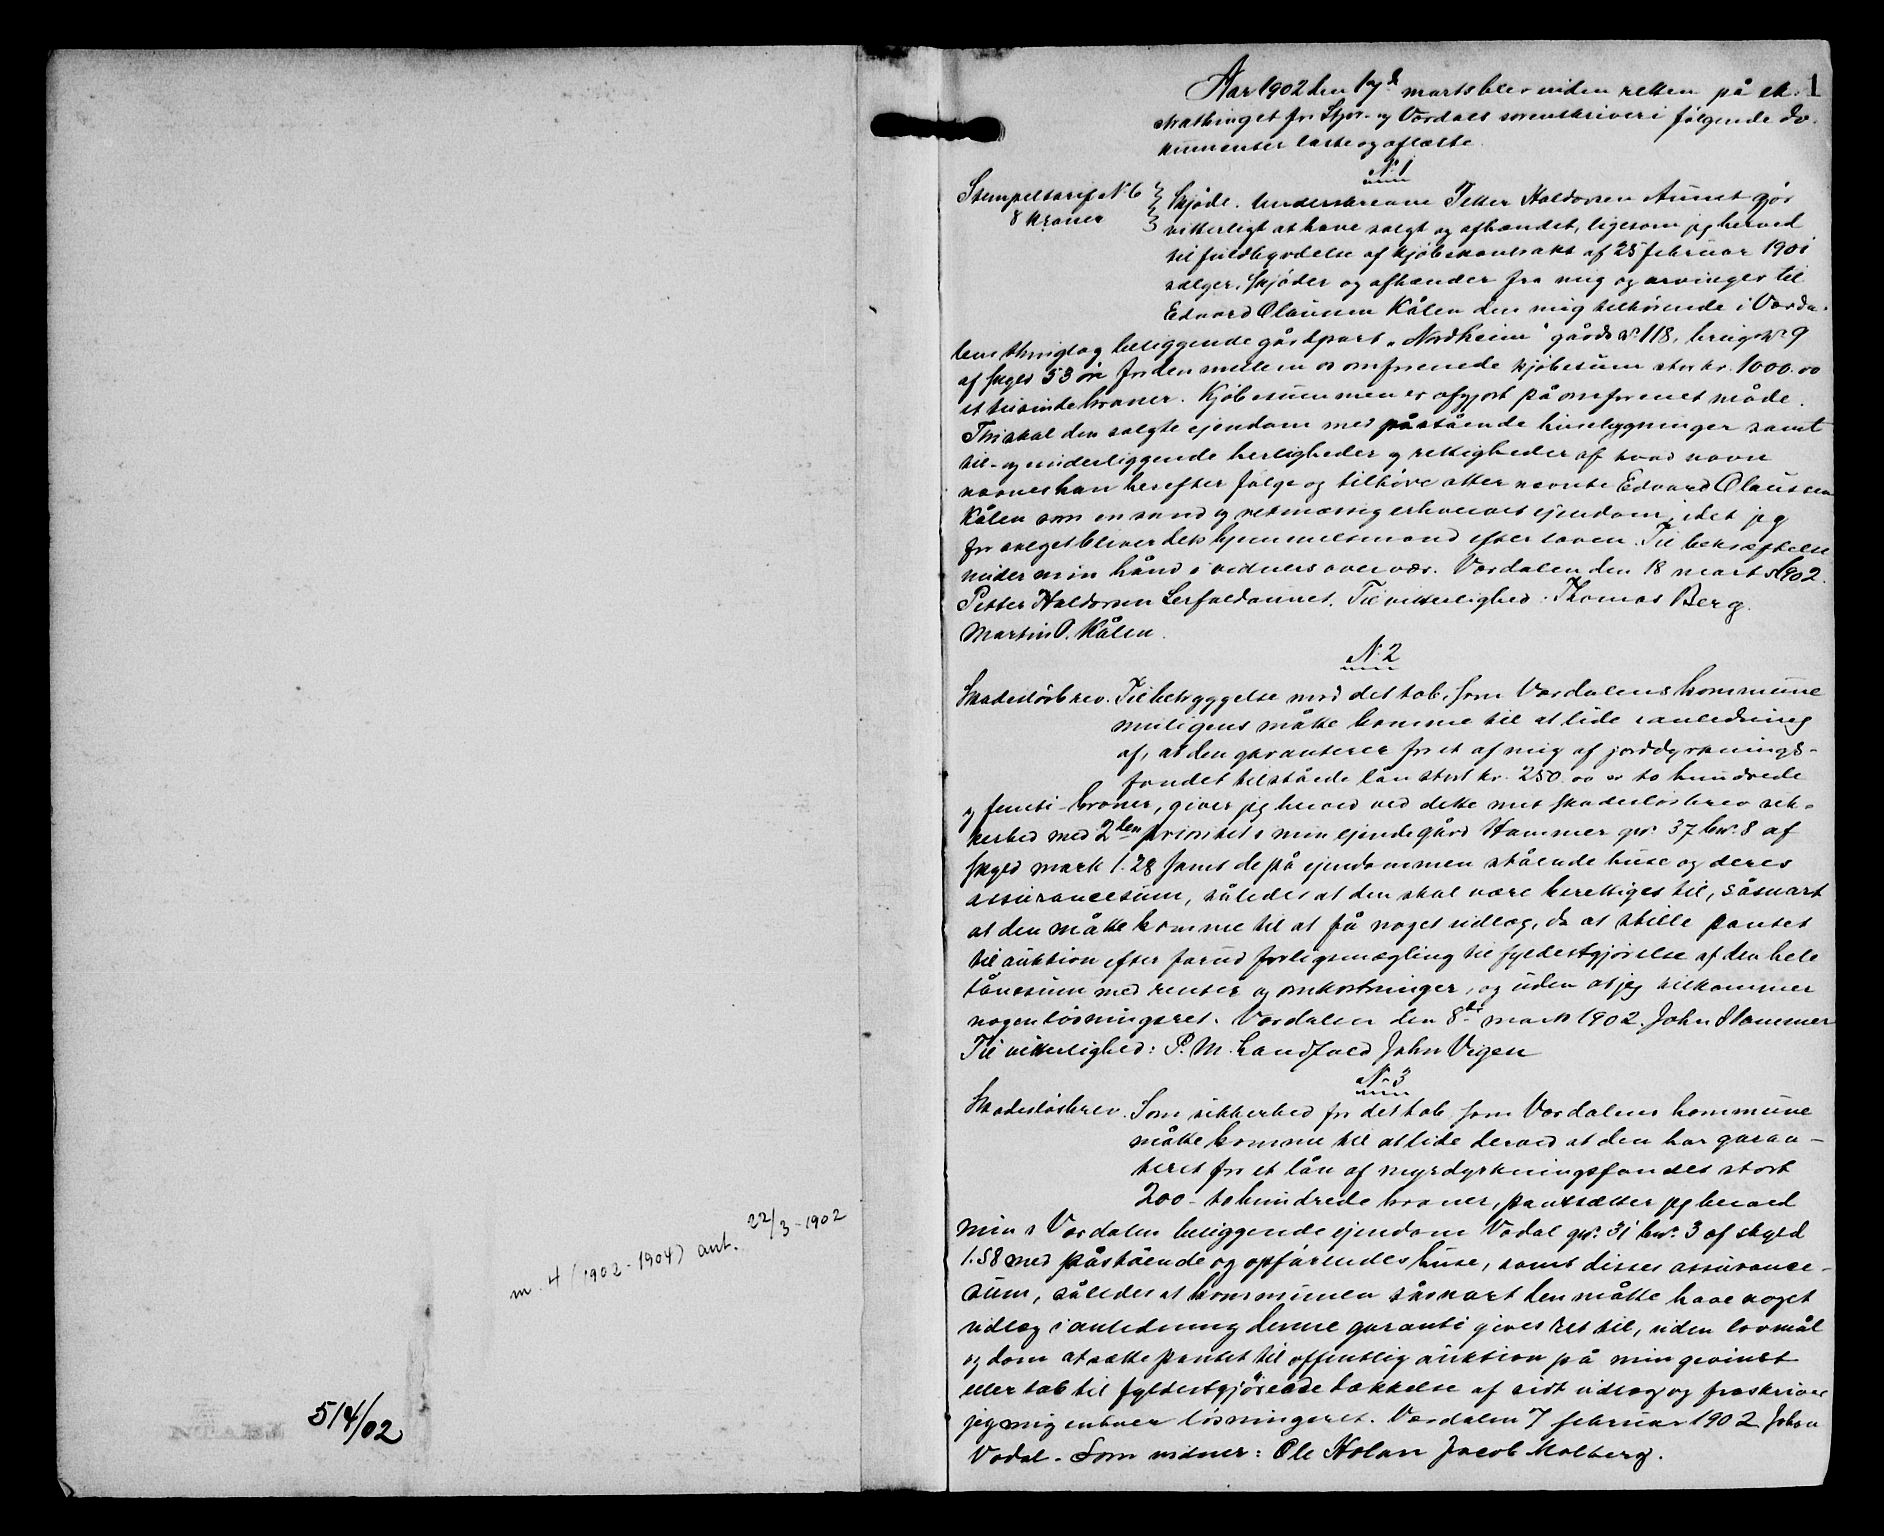 m. 4 (1902-1904) ant. 22/3-1902
514/02
1
Aar 1902 den 19de marts blev inden retten på ek-
strathinget for Stjør- og Værdals sorenskriveri følgende do-
kumenter læste og aflæste.
N: 1
Stempeltarif N: 6
8 kroner
Skjøde. Underskrevne Petter Haldorsen Aunet gjør
vitterligt at have solgt og afhændet, ligesom jeg herved
til fuldbyrdelse af kjøbekontrakt af 25 februar 1901
sælger, skjøder og afhænder fra mig og arvinger til
Edvard Olausen Kålen den mig tilhørende i Værda-
lens thinglag beliggende gårdpart "Nordheim" gårds N: 118, brugs N: 9
af skyld 53 øre for den mellem os omforenede kjøbesum stor kr. 1000.00
et tusinde kroner. Kjøbesummen er afgjort på omforenet måde.
Thi skal den solgte ejendom med påstående husebygninger samt
til- og underliggende herligheder og rettigheder af hvad navn
nævnes kan herefter følge og tilhøre atter nævnte Edvard Olausen
Kålen som en sand og retmæssig erhvervet ejendom, idet jeg
for salget bliver dets hjemmelsmand efter loven. Til bekræftelse
under min hånd i vidners overvær. Værdalen den 18 marts 1902.
Petter Haldorsen Lerfaldaunet. Til vitterlighed: Thomas Berg.
Martin O. Kålen.
N: 2
Skadesløsbrev. Til betryggelse mod det tab, som Værdalens kommune
muligens måtte komme til at lide i anledning
af, at den garanterer for et af mig af jorddyrknings-
fondet tilstående lån stort kr. 250.00 er to hundrede
og femti kroner, giver jeg herved ved dette mit skadesløsbrev sik-
kerhed med 2den prioritet i min ejende gård Hammer gn: 37 bn: 8 af
skyld mark 1.28 samt de på ejendommen stående huse og deres
assurancesum, således at den skal være berettiget til, såsnart
at den måtte komme til at få noget udlæg, da at stille pantet
til auktion efter forud forligsmægling til fyldestgjørelse af den hele
lånesum med renter og omkostninger, og uden at jeg tilkommer
nogen løsningsret. Værdalen den 8de marts 1902. John Hammer
Til vitterlighed: P. M. Landfald John Vigen
N: 3
Skadesløsbrev. Som sikkerhed for det tab som Værdalens kommune
måtte komme til at lide derved at den har garan-
teret for et lån af myrdyrkningsfondet stort
200 - tohundrede kroner, pantsætter jeg herved
min i Værdalen beliggende ejendom Vodal gn: 31 bn: 3 af skyld
1.58 med påstående og opførendes huse, samt disses assurance-
sum, således at kommunen såsnart den måtte have noget
udlæg i anledning denne garanti gives ret til, uden lovmål
og dom at sætte pantet til offentlig auktion på min gevinst
eller tab til fyldestgjørende dækkelse af sidt udlæg og fraskriver
jeg mig enhver løsningsret. Værdalen 7 februar 1902 Johan
Vodal. Som vidner: Ole Holan Jacob Molberg.